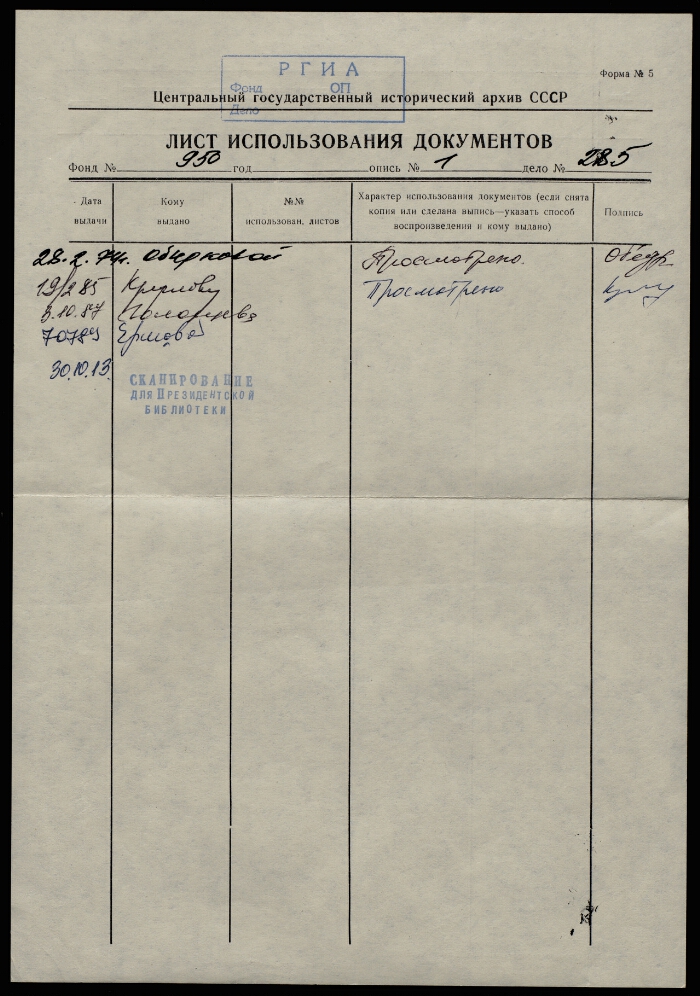 РГИА
Фонд ОП
Дело
Форма № 5
Центральный государственный исторический архив СССР
ЛИСТ ИСПОЛЬЗОВАНИЯ ДОКУМЕНТОВ
Фонд № 950 год опись № 1 дело № 285
Дата выдачи
Кому выдано
№№ использован. листов
Характер использования документов (если снята
копия или сделана выпись—указать способ
воспроизведения и кому выдано)
Подпись
Просмотрено.
19/2 85 Крылову Просмотрено
3.10.87
30.10.13
СКАНИРОВАНИЕ
ДЛЯ ПРЕЗИДЕНТСКОЙ
БИБЛИОТЕКИ